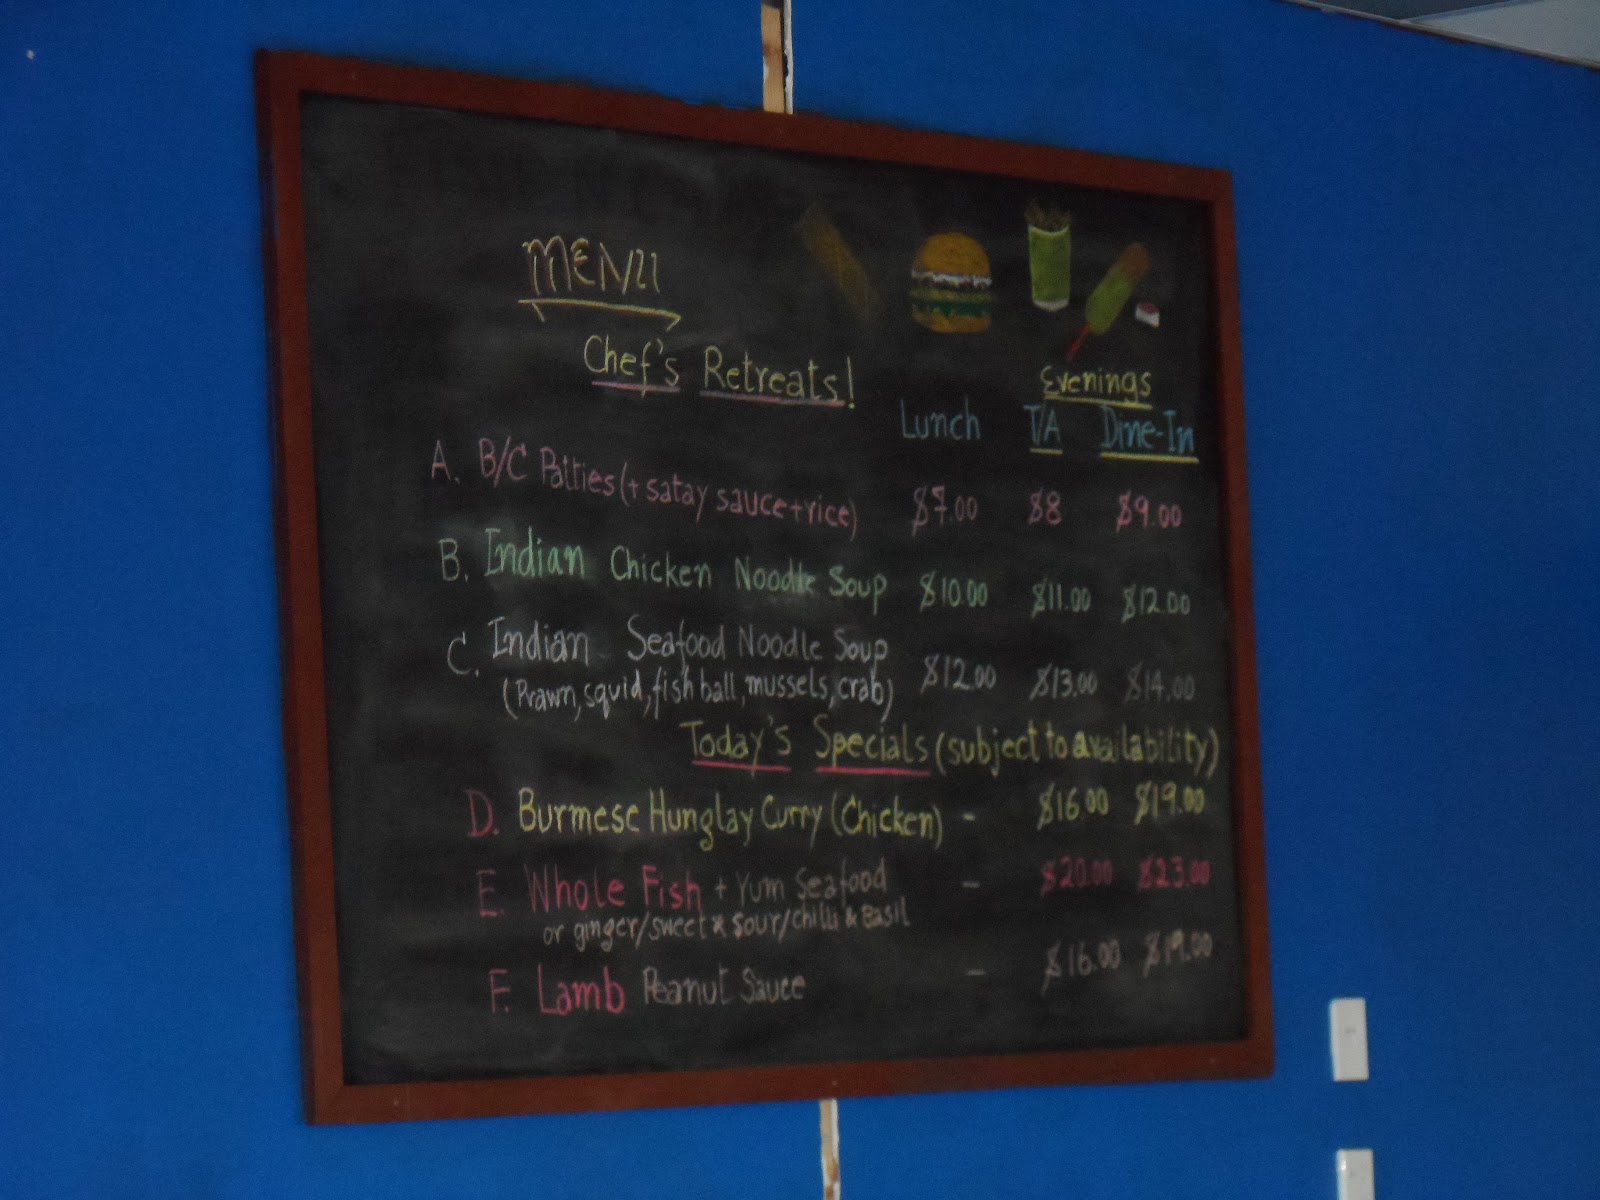 MENU
Chef's Retreats!
Evenings
Lunch T/A Dine-In
A. B/C Patties (+ satay sauce + rice) $7.00 $8 $9.00
B. Indian Chicken Noodle Soup $10.00 $11.00 $12.00
C. Indian Seafood Noodle Soup $12.00 $13.00 $14.00
(Prawn, squid, fish ball, mussels, crab)
Today's Specials (subject to availability)
D. Burmese Hunglay Curry (Chicken) - $16.00 $19.00
E. Whole Fish + Yum Seafood - $20.00 $23.00
or ginger/sweet & sour/chilli & Basil
F. Lamb Peanut Sauce - $16.00 $19.00